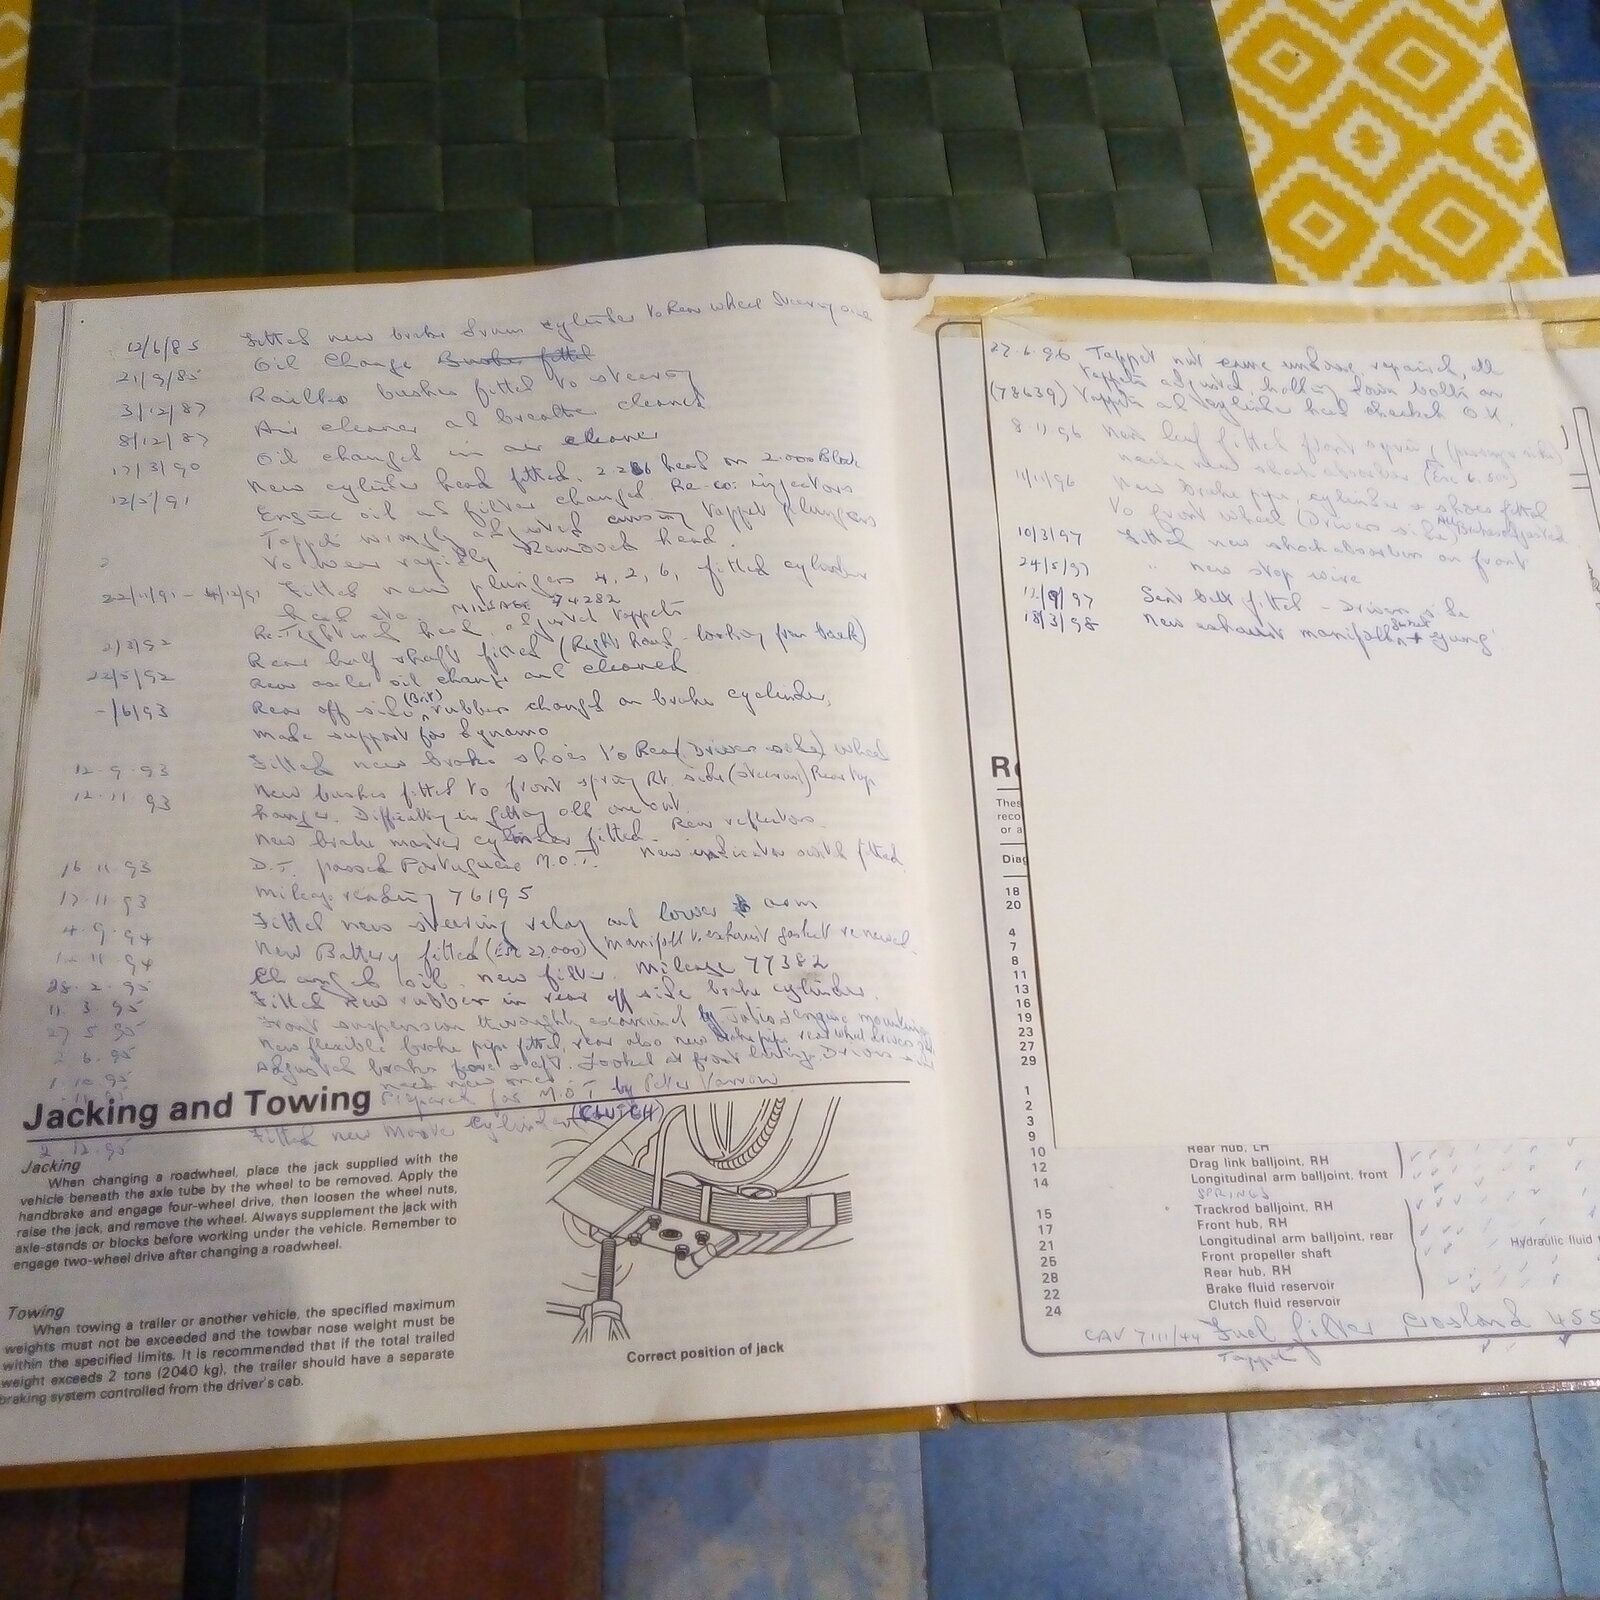 12/6/85 Fitted new brake drum cylinder to Rear wheel Steering side
21/9/85 Oil Change
3/12/87 Railko bushes fitted to steering
8/12/87 Air cleaner and breather cleaned
Oil changed in air cleaner
17/3/90 New cylinder head fitted. 2.286 head on 2.000 Block
12/5/91 Engine oil and filter changed. Re-co: injectors
Tappets wrongly adjusted causing tappet plungers
to wear rapidly Removed head.
22/11/91 - 4/12/91 Fitted new plungers 4, 2, 6, fitted cylinder
head etc. MILEAGE 74282
2/3/92 Re-Tightened head, adjusted tappets
22/5/92 Rear half shaft fitted (Right hand - looking from back)
Rear axle oil change and cleaned
-/6/93 Rear off side (Brit) rubbers changed on brake cylinder,
made support for dynamo
12.9.93 Fitted new brake shoes to Rear (Drivers side) wheel
12.11.93 New bushes fitted to front spring Rt. side (steering) Rear top
hanger. Difficulty in getting old one out.
New brake master cylinder fitted. Rear reflectors.
16.11.93 D.T. passed Portuguese M.O.T. New indicator switch fitted
17.11.93 Mileage reading 76195
4.9.94 Fitted new steering relay and lower arm
New Battery fitted (Esc 27,000) Manifold & exhaust gasket renewed
28.2.95 Changed oil, new filter. Mileage 77382
11.3.95 Fitted new rubbers in rear off side brake cylinder.
27 5 95 Front suspension thoroughly examined by engine mounting
2 6.95 New flexible brake pipe fitted, rear also new brake pipe rear wheel drivers side
1.10.95 Adjusted brakes fore & aft. Looked at front linings Drivers
need new ones
Prepared for M.O.T by Peter
2 12.95 Fitted new Master Cylinder (CLUTCH)
Jacking and Towing
Jacking
When changing a roadwheel, place the jack supplied with the
vehicle beneath the axle tube by the wheel to be removed. Apply the
handbrake and engage four-wheel drive, then loosen the wheel nuts,
raise the jack, and remove the wheel. Always supplement the jack with
axle-stands or blocks before working under the vehicle. Remember to
engage two-wheel drive after changing a roadwheel.
Towing
When towing a trailer or another vehicle, the specified maximum
weights must not be exceeded and the towbar nose weight must be
within the specified limits. It is recommended that if the total trailed
weight exceeds 2 tons (2040 kg), the trailer should have a separate
braking system controlled from the driver's cab.
Correct position of jack
27.6.96 Tappet nut came undone, repaired, all
tappets adjusted, holding down bolts on
(78639) tappets and cylinder head checked O.K.
8.11.96 New leaf fitted front spring (passenger side)
needs new shock absorber (Esc 6.500)
11/11/96 New Brake pipe, cylinder & shoes fitted
to front wheel (Drivers side) All Brakes adjusted
10/3/97 Fitted new shockabsorbers on front
24/5/97 " new stop wire
11/9/97 Seat belt fitted - Drivers side
18/3/98 New exhaust manifold
Thes
reco
or a
Diag
18
20
4
7
8
11
13
16
19
23
27
29
1
2
3
9
10 Rear hub, LH
12 Drag link balljoint, RH
14 Longitudinal arm balljoint, front
SPRINGS
15 Trackrod balljoint, RH
17 Front hub, RH
21 Longitudinal arm balljoint, rear
25 Front propeller shaft Hydraulic fluid
28 Rear hub, RH
22 Brake fluid reservoir
24 Clutch fluid reservoir
CAV 7111/44 Fuel filter Crosland 455
Tappet